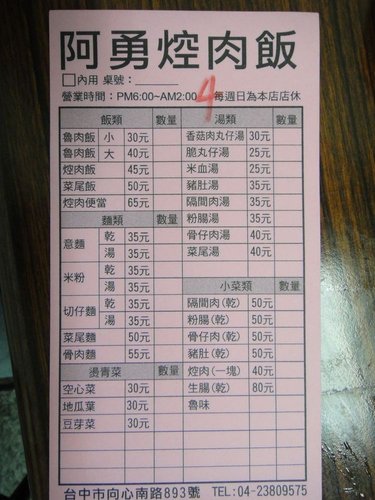 阿勇焢肉飯
□內用 桌號：
營業時間：PM6:00~AM2:00 每週日為本店店休
4
飯類 數量
魯肉飯 小 30元
魯肉飯 大 40元
焢肉飯 45元
菜尾飯 50元
焢肉便當 65元
麵類 數量
意麵 乾 35元
湯 35元
米粉 乾 35元
湯 35元
切仔麵 乾 35元
湯 35元
菜尾麵 50元
骨肉麵 55元
燙青菜 數量
空心菜 30元
地瓜葉 30元
豆芽菜 30元
湯類 數量
香菇肉丸仔湯 30元
脆丸仔湯 25元
米血湯 25元
豬肚湯 35元
隔間肉湯 35元
粉腸湯 35元
骨仔肉湯 40元
菜尾湯 40元
小菜類 數量
隔間肉(乾) 50元
粉腸(乾) 50元
骨仔肉(乾) 50元
豬肚(乾) 50元
焢肉(一塊) 40元
生腸(乾) 80元
魯味
台中市向心南路893號 TEL:04-23809575